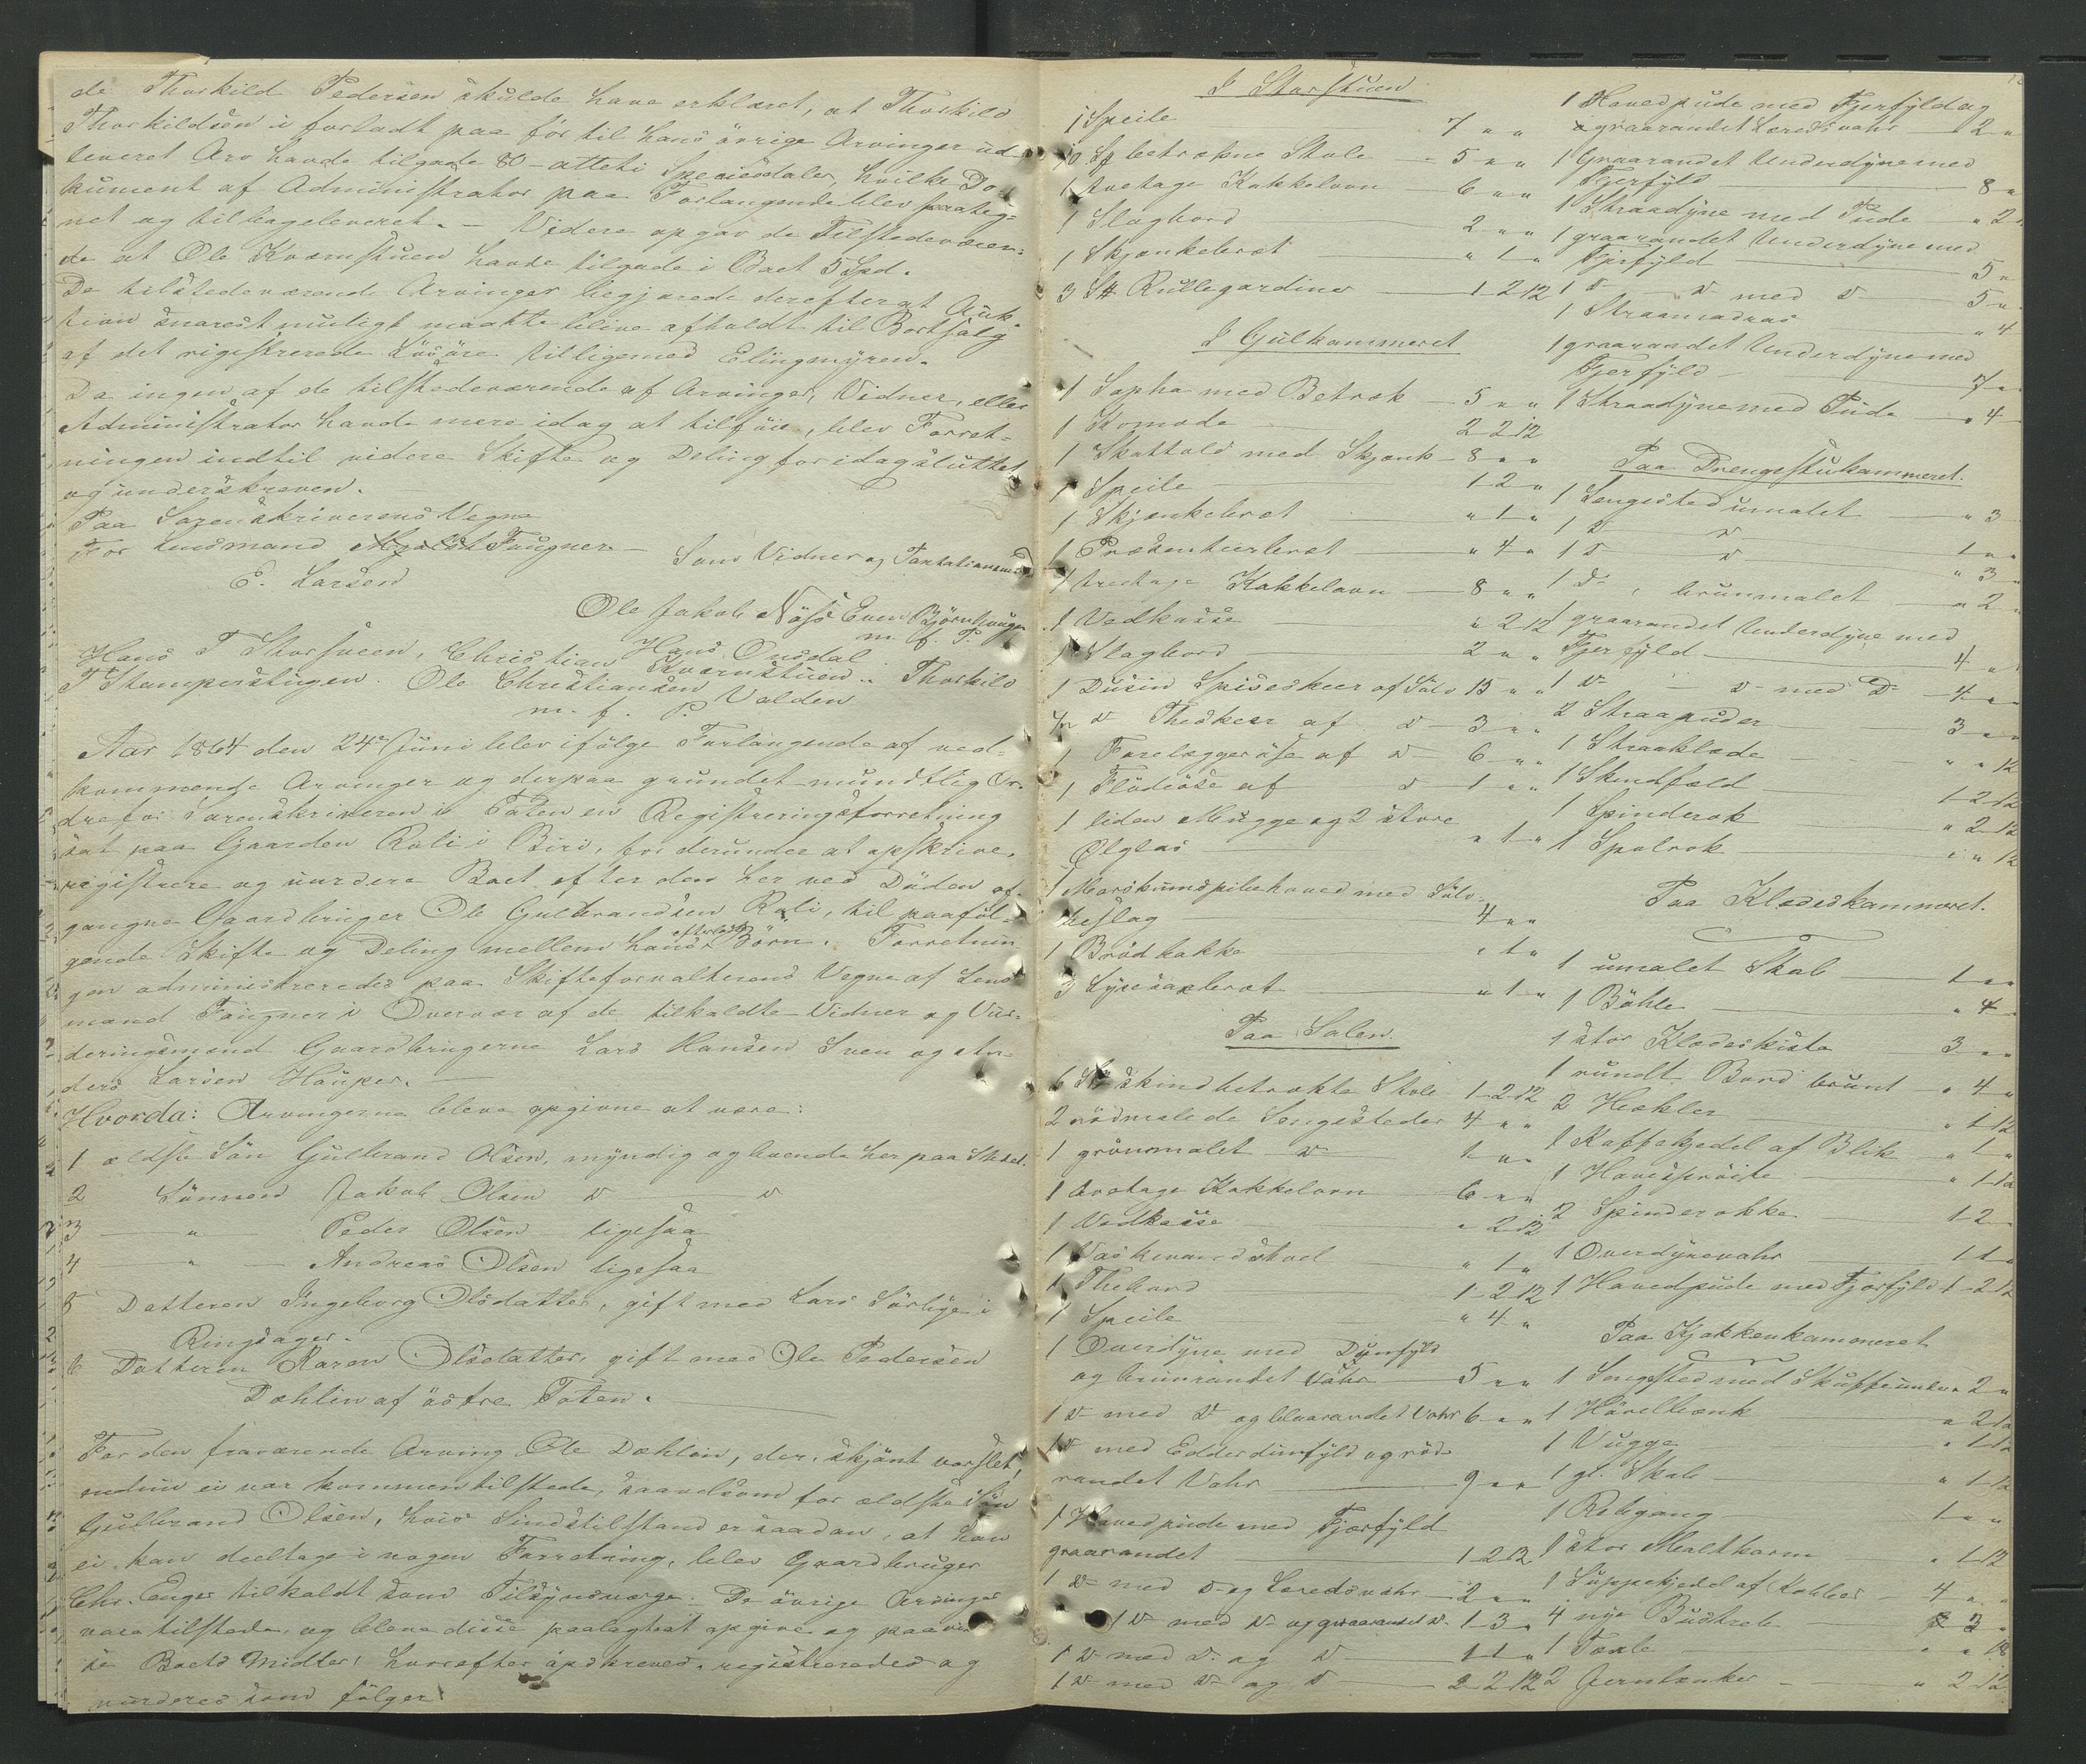 de Thorkild Pedersen skulde have erklæret, at Thorkild
Thorkildsen i forladt paa før til hans øvrige Arvinger ud-
leveret Arv havde tilgode 80 - otteti Speciedaler, hvilke Do-
kument af Administrator paa Forlangende blev paateg-
net og tilbageleveret. - Videre opgav de Tilstedeværen-
de at Ole Kværnstuen havde tilgode i Boet 5 Spd.
De tilstedeværende Arvinger begjærede derefter at Auk-
tion snarest muligt maatte blive afholdt til Bortsalg
af det registrerede Løsøre tilligemed Elingmyren.
Da ingen af de tilstedeværende af Arvinger, Vidner, eller
Administrator havde mere idag at tilføie, blev Forret-
ningen indtil videre Skifte og Deling for idag sluttet
og underskreven.
Paa Sorenskriverens Vegne
For Lensmand Faugner
E. Larsen
Som Vidner og Taxtationsmænd
Ole Jakob Næss Even Bjørnhaugen
m. f. P.
Hans T Storsveen, Christian Hans Onsdal
T Stamperstugen. Ole Christiansen Kværnstuen. Thorkild
m. f. P. Volden
Aar 1864 den 24de Juni blev ifølge Forlangende af ved-
kommende Arvinger og derpaa grundet mundtlig Or-
dre fra Sorenskriveren i Toten en Registreringsforretning
sat paa Gaarden Roli i Biri, for derunder at opskrive,
registrere og vurdere Boet efter den her ved Døden af-
gangne Gaardbruger Ole Gulbrandsen Roli, til paaføl-
gende Skifte og Deling mellem hans efterladte Børn. Forretnin-
gen administreredes paa Skifteforvalterens Vegne af Lens-
mand Faugner i Overvær af de tilkaldte Vidner og Vur-
deringsmænd Gaardbrugerne Lars Hansen Sveen og An-
ders Larsen Hauger.
Hvorda: Arvingerne bleve opgivne at være:
1 ældste Søn Gulbrand Olsen, myndig og boende her paa Stedet.
2 Sønnen Jakob Olsen d d
3 - " - Peder Olsen ligesaa
4 - " - Andreas Olsen ligesaa
5 Datteren Ingeborg Olsdatter, gift med Lars Sørbye i
Ringsager.
6 Datteren Karen Olsdatter, gift med Ole Pedersen
Dæhlin af østre Toten.
For den fraværende Arving Ole Dæhlin, der, skjønt varslet,
endnu ei var kommen tilstede, saavelsom for ældste Søn
Gulbrand Olsen, hvis Sindstilstand er saadan, at han
ei kan deeltage i nogen Forretning, blev Gaardbruger
Chr. Enger tilkaldt som Tilsynsværge. De øvrige Arvinger
vare tilstede, og bleve disse paalagt at opgive og paavi-
se Boets Midler, hvorefter opskreves, registreredes og
vurderes som følger:
I Storstuen
1 Speile 7 " "
10 St betrokne Stole 5 " "
1 toetage Kakkelovn 6 " "
1 Slagbord 2 " "
1 Skjænkebræt " 1 "
3 St Rullegardiner 1 2 12
I Gulkammeret
1 Sopha med Betræk 5 " "
1 Komode 2 2 12
1 Skattold med Skjænk 8 " "
1 Speile 1 2 "
1 Skjænkebræt " 1 "
1 Præsenteerbræt " 4 "
1 treetage Kakkelovn 8 " "
1 Vedkasse " 2 12
1 Slagbord 2 " "
1 Dusin Spiseskeer af Sølv 15 " "
1/2 d Theskeer af d 3 " "
1 Forelæggerøse af d 6 " "
1 Flødeøse af d 1 " "
1 liden Mugge og 2 store
Ølglas " 1 "
1 Merskumspibehoved med Sølv-
beslag 4 " "
1 Brødbakke " 1 "
3 Lysesaxbræt " 1 "
Paa Salen
6 St skindbetrækte Stole 1 2 12
2 rødmalede Sengesteder 4 " "
1 grønmalet d 1 " "
1 toetage Kakkelovn 6 " "
1 Vedkasse " 2 12
1 Vaskevandsskaal " 1 "
1 Thebord 1 2 12
1 Speile " 4 "
1 Overdyne med Dunfyld
og brunrandet Vahr 5 " "
1 d med d og blaarandet Vahr 6 " "
1 d med Edderdunfyld og rød-
randet Vahr 9 " "
1 Hovedpude med Fjærfyld
graarandet 1 2 12
1 d med d og Lærredsvahr 2 " "
1 d med d og graarandet d. 1 3 "
1 d med d. og d 1 1 "
1 d med d og d 2 2 12
1 Hovedpude med Fjerfyld og
graarandet Lærredsvahr 2 "
1 Graarandet Underdyne med
Fjerfyld 8 "
1 Straadyne med Pude " 2 "
1 graarandet Underdyne med
Fjerfyld 5 "
1 d d med d 5 "
1 Straamadras " 4
1 graarandet Underdyne med
Fjerfyld 7 "
1 Straadyne med Pude " 4
Paa Drengestukammeret.
1 Sengested umalet " 3
1 d d 1 " "
1 d d " 3 "
1 d brunmalet " 2 "
1 graarandet Underdyne med
Fjerfyld 4 "
1 d d med d 4 "
2 Straapuder 3 " "
1 Straaklæde " " 12
1 Skindfæld 1 2 12
1 Spinderok " 2 12
1 Spolrok " " 12
Paa Klædeskammeret.
1 umalet Skab 1 " "
1 Bøhle " 4
1 stor Klædeskiste 3 " "
1 rundt Bord brunt " 4 "
2 Hekler " 1 12
1 Kaffekjedel af Blik " 1 "
1 Havesprøite " 1 12
2 Spinderokke 1 2
1 Overdynevahr 1 1 "
1 Hovedpude med Fjærfyld 1 2 12
Paa Kjøkkenkammeret
1 Sengsted med Skuffe under " 2 "
1 Høvelbænk " 2 12
1 Vugge " 1 12
1 gl. Skab " 1 12
1 Rebgang 1 " "
1 stor Maltharm " 1 12
1 Suppekjedel af Kobber 4 " "
4 nye 3
1 " " 18
2 Jernlænker " 2 12